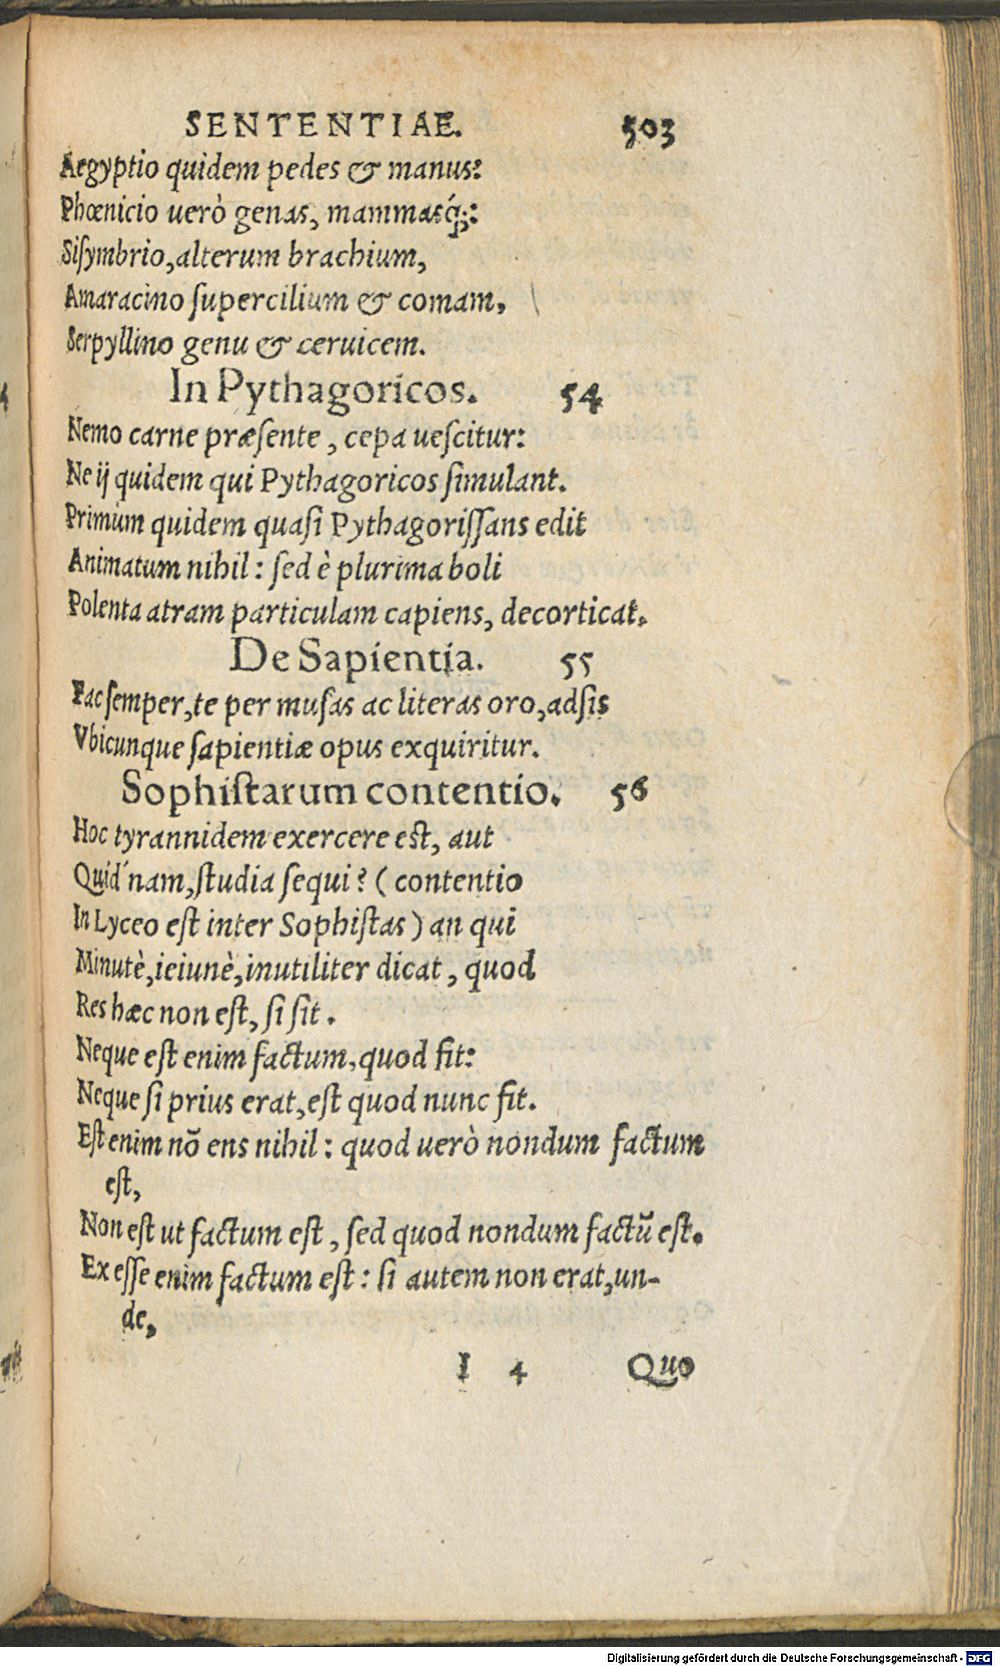 SENTENTIAE. 503
Aegyptio quidem pedes & manus:
Phœnicio uerò genas, mammasq́;:
Siſymbrio, alterum brachium,
Amaracino ſupercilium & comam,
Serpyllino genu & ceruicem.
In Pythagoricos. 54
Nemo carne præſente, cepa ueſcitur:
Ne ij quidem qui Pythagoricos ſimulant.
Primùm quidem quaſi Pythagoriſſans edit
Animatum nihil: ſed è plurima boli
Polenta atram particulam capiens, decorticat.
De Sapientia. 55
Fac ſemper, te per muſas ac literas oro, adſis
Vbicunque ſapientiæ opus exquiritur.
Sophiſtarum contentio. 56
Hoc tyrannidem exercere eſt, aut
Quid´nam, ſtudia ſequi? (contentio
In Lyceo eſt inter Sophiſtas) an qui
Minutè, ieiunè, inutiliter dicat, quod
Res hæc non eſt, ſi ſit.
Neque eſt enim factum, quod fit:
Neque ſi prius erat, eſt quod nunc fit.
Eſt enim nõ ens nihil: quod uerò nondum factum
eſt,
Non eſt ut factum eſt, ſed quod nondum factũ eſt.
Ex eſſe enim factum eſt: ſi autem non erat, un-
de,
I 4 Quo
Digitalisierung gefördert durch die Deutsche Forschungsgemeinschaft - DFG